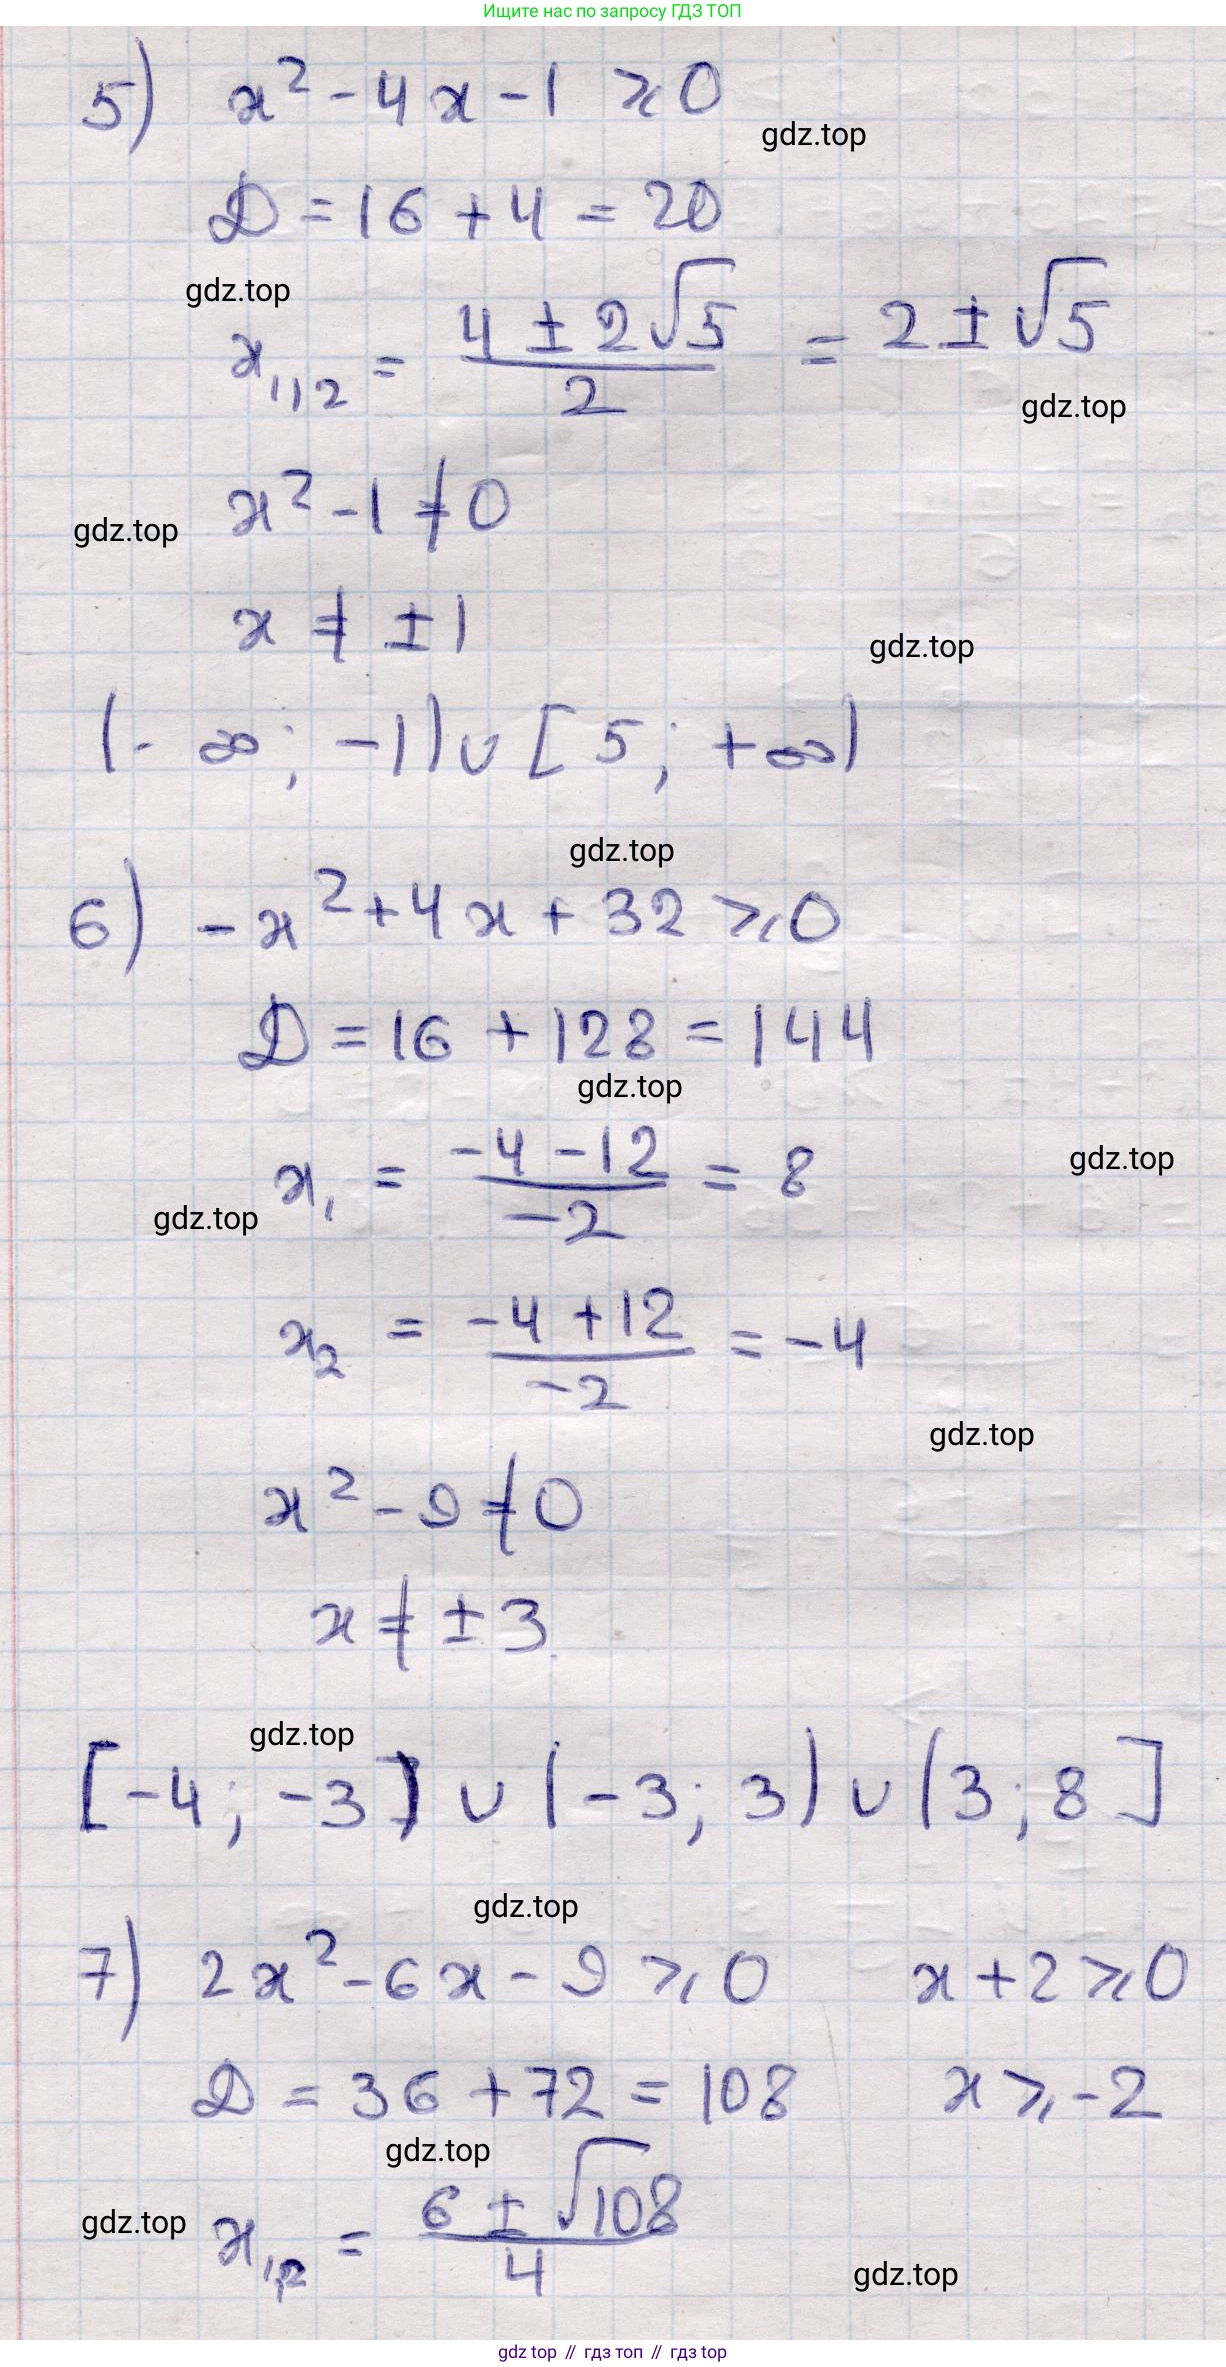 Ищите нас по запросу ГДЗ ТОП
5) x² - 4x - 1 ⩾ 0
gdz.top
D = 16 + 4 = 20
gdz.top
x₁,₂ = (4 ± 2√5)/2 = 2 ± √5
gdz.top
x² - 1 ≠ 0
gdz.top
x ≠ ± 1
gdz.top
(- ∞; -1) ∪ [5; +∞)
gdz.top
6) -x² + 4x + 32 ⩾ 0
D = 16 + 128 = 144
gdz.top
x₁ = (-4 - 12)/(-2) = 8
gdz.top
gdz.top
x₂ = (-4 + 12)/(-2) = -4
gdz.top
x² - 9 ≠ 0
x ≠ ± 3
gdz.top
[-4; -3) ∪ (-3; 3) ∪ (3; 8]
gdz.top
7) 2x² - 6x - 9 ⩾ 0 x + 2 ⩾ 0
D = 36 + 72 = 108 x ⩾ -2
gdz.top
x₁,₂ = (6 ± √108)/4
gdz.top
gdz.top
gdz top // гдз топ // гдз top